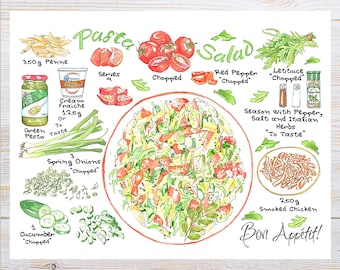 Pasta Salad
350g Penne
Serves
4
Chopped
Red Pepper
"Chopped"
Lettuce
"Chopped"
Green Pesto
Creme
Fraiche
125g
Or
To
Taste
Season With Pepper,
Salt and Italian
Herbs
"To Taste"
3
Spring Onions
"Chopped"
1
Cucumber
"Chopped"
250g
Smoked Chicken
Bon Appetit!